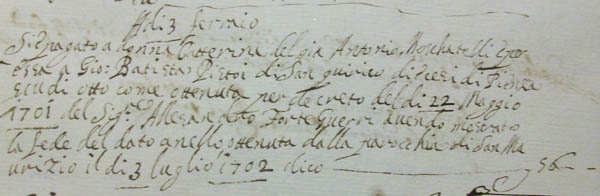 Adi 3 ferraio
Si è pagato a donna Caterina del gia Antonio Moschatelli e per
essa a Gio: Batista Pietoi di San quirico diocesi di Pienza
scudi otto come ottenuta per decreto del di 22 Maggio
1701 del Sigr. Allesandro Forteguerri avendo mostrato
la fede del dato anello, ottenuta dalla parochia di San Ma
urizio il di 3 luglio 1702 dico 56